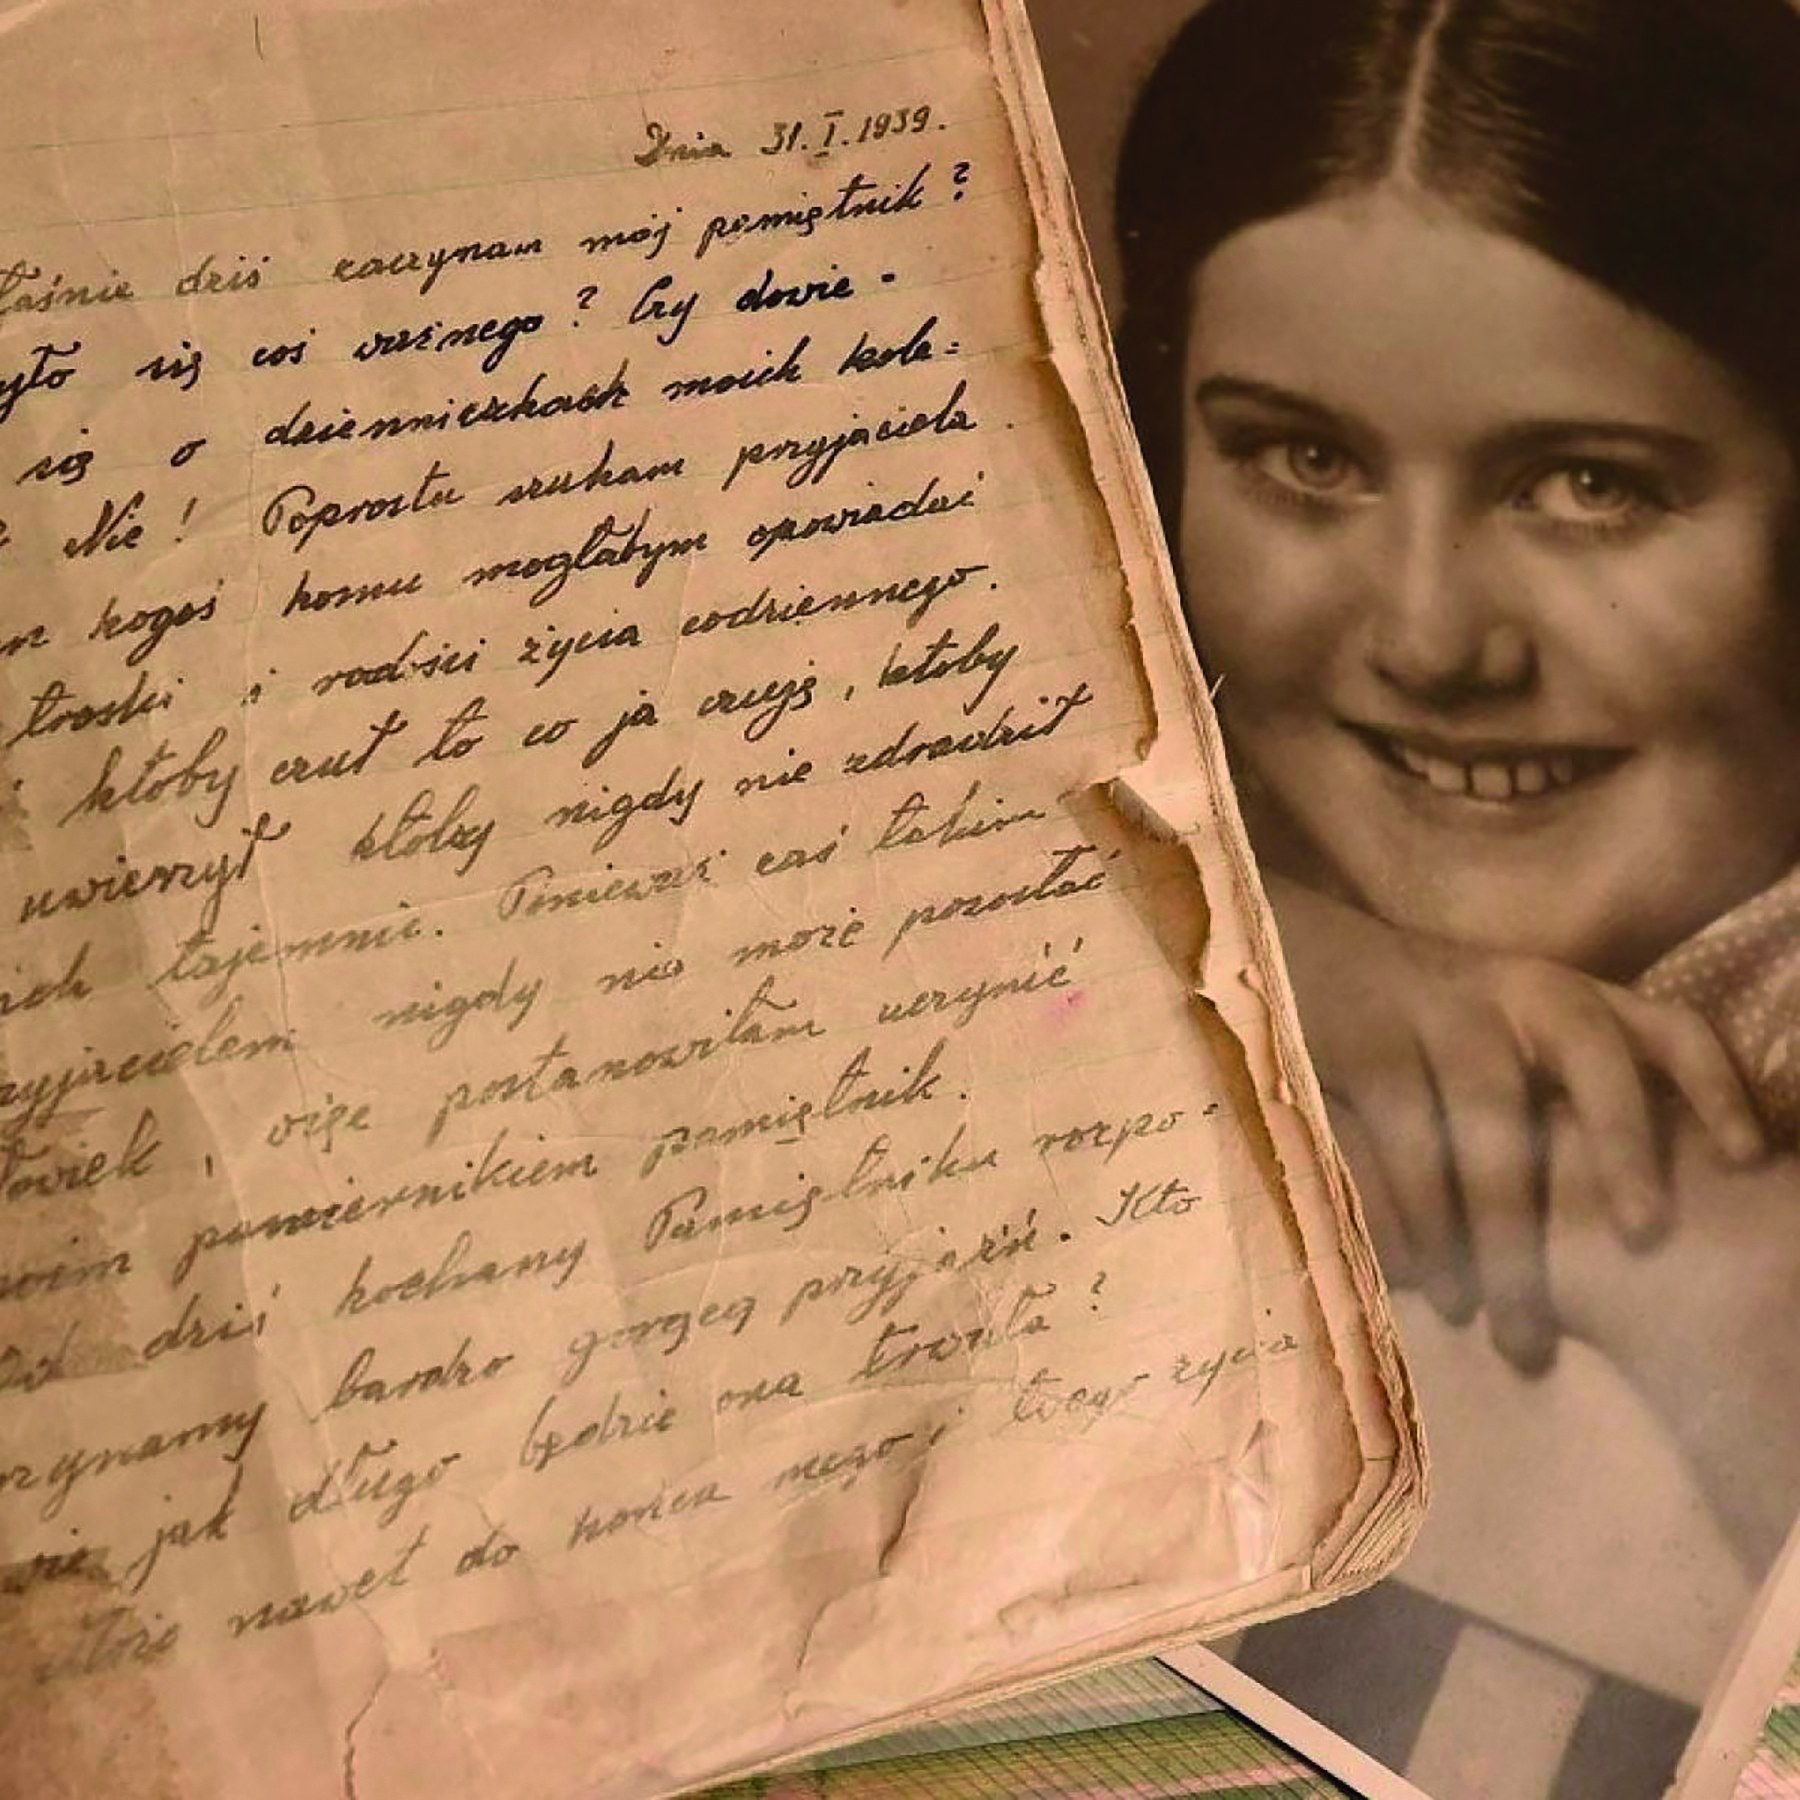 Dnia 31.I.1939.
właśnie dziś zaczynam mój pamiętnik?
się coś ważnego? Czy dowie-
się o dzienniczkach moich kole=
Nie! Poprostu szukam przyjaciela.
kogoś komu mogłabym opowiadać
troski i radości życia codziennego.
ktoby czuł to co ja czuję, ktoby
uwierzył ktoby nigdy nie zdradził
tajemnic. Ponieważ zaś takim
przyjacielem nigdy nie może pozostać
człowiek, więc postanowiłam uczynić
powiernikiem pamiętnik.
dziś kochany Pamiętniku rozpo-
czynamy bardzo gorącą przyjaźń. Kto
wie jak długo będzie ona trwała?
Może nawet do końca mego i twego życia